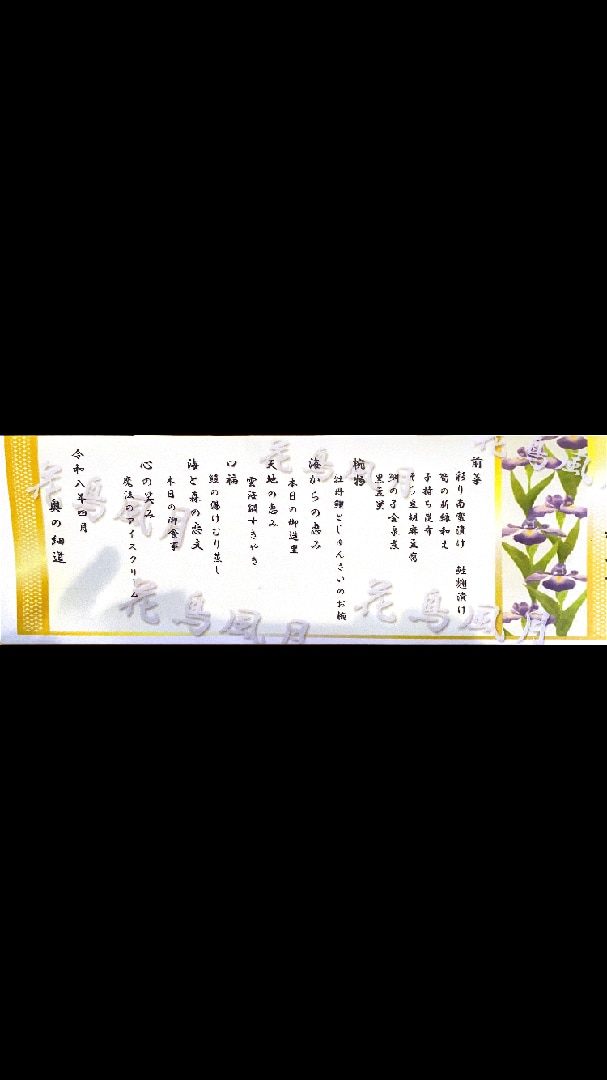 前菜
彩り南蛮漬け　鮭麹漬け
筍の新緑和え
子持ち昆布
そら豆胡麻豆腐
鯛の子金泉煮
黒豆蜜
椀物
牡丹鱧とじゅんさいのお椀
海からの恵み
本日の御造里
天地の恵み
雲海鍋すきやき
口福
鰻の傷けむり蒸し
海と森の恋文
本日の御食事
心の笑み
魔法のアイスクリーム
令和八年四月
奥の細道
花鳥風月
花鳥風月
花鳥風月
花鳥風月
花鳥風月